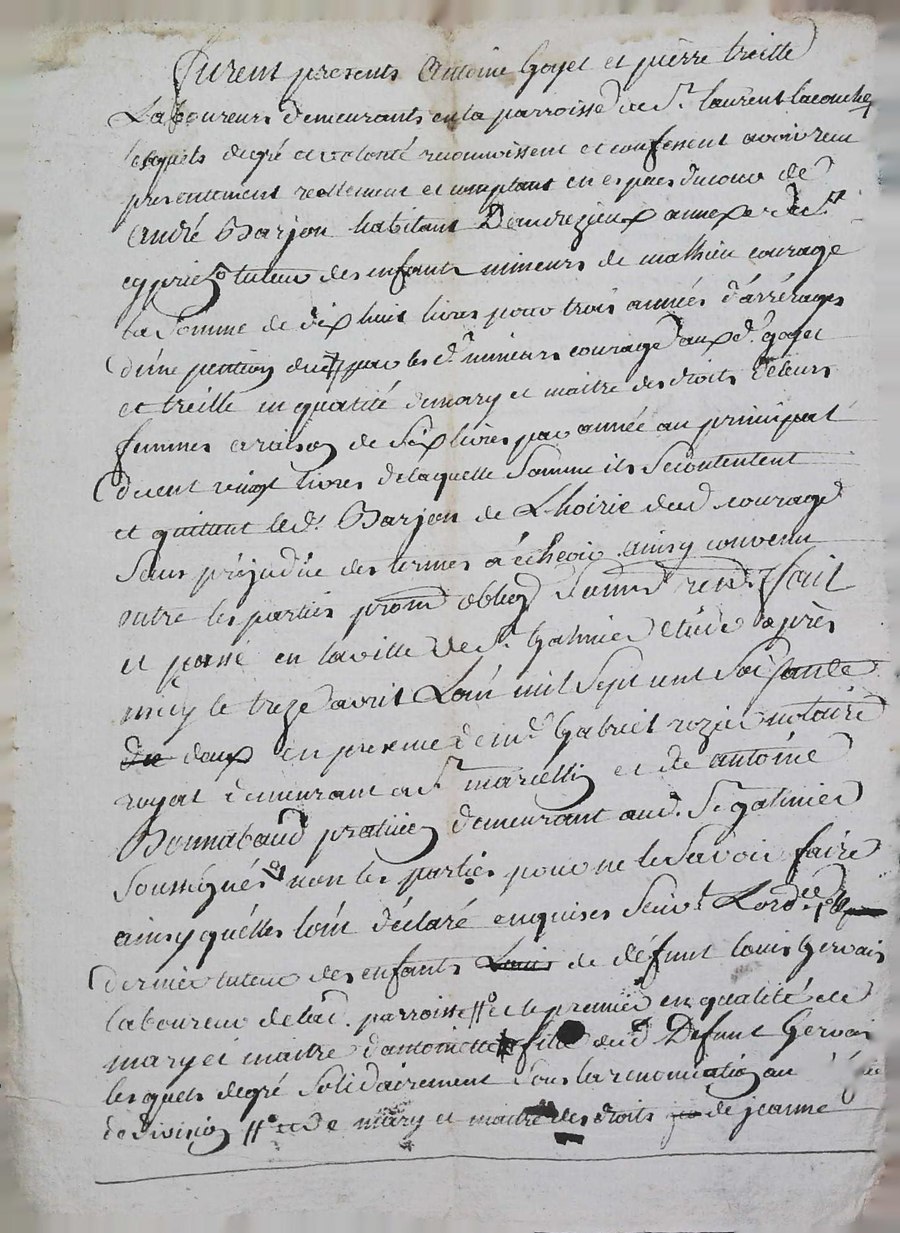 furent presents Antoine Goyet et pierre treille
Laboureurs demeurants en la parroisse de St. laurent laconche
lesquels degré et volonté reconnoissent et confessent avoir reçu
presentement reellement et comptant en espaes du cour de
André Barjon habitant Dandrezieux annexe de St.
cyprien tuteur des enfants mineurs de mathieu courage
la somme de dix huit livres pour trois années d'arrérages
d'une pention due par les d. mineurs courage aux d. goyet
et treille en qualité de mary et maitre des droits de leurs
femmes a raison de six livres par année au principal
de cent vingt livres de laquelle somme ils se contentent
et quittent le d. Barjon de L'hoirie dud courage
sans préjudice des termes à écheoir ainsy convenu
entre les parties prom oblig fait
et passé en la ville de St. Galmier étude après
midy le treze avril L'an mil sept cent soixante
dix deux en presence de me. Gabriel rozier notaire
royal demeurant a St. marcellin et de antoine
Bonnabaud praticien demeurant aud. St galmier
soussignés non les parties pour ne le savoir faire
ainsy quelles l'ont déclaré enquises suivt. L'ord.ce
dernier tuteur des enfants Louis de défunt louis Gervais
laboureur de lad. parroisse et le premier en qualité de
mary et maitre d'antoinette fille dud Défunt Gervais
lesquels degré solidairement sous la renonciation au
de division de mary et maitre des droits de jeanne